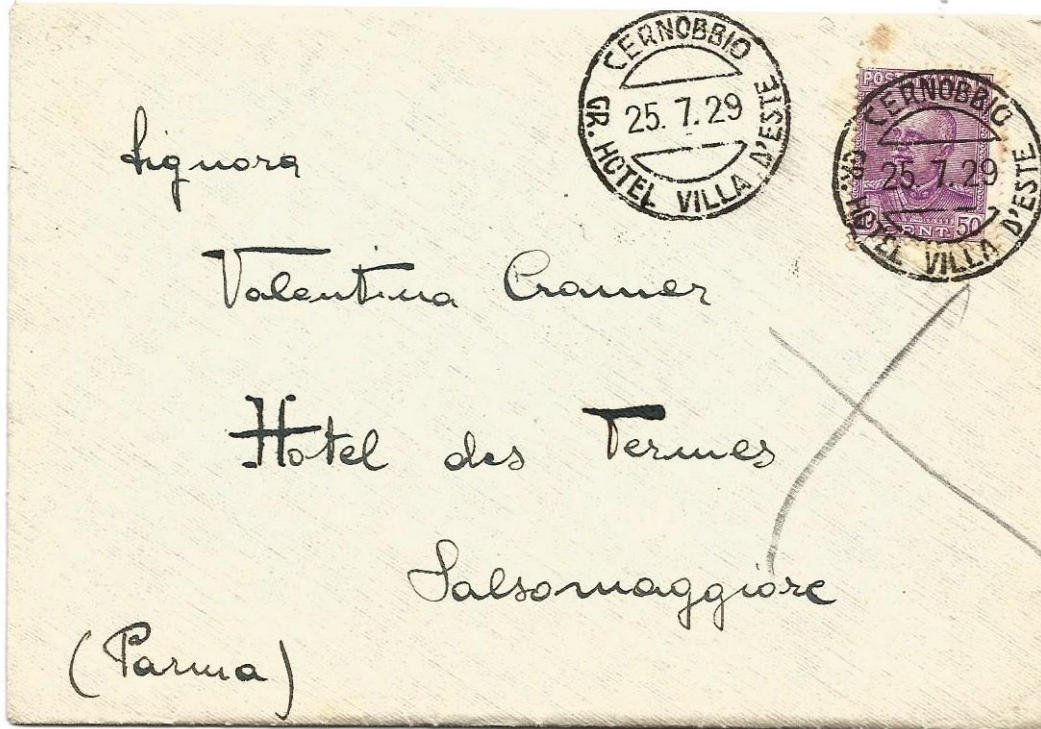 CERNOBBIO
25.7.29
GR. HOTEL VILLA D'ESTE
CERNOBBIO
25.7.29
GR. HOTEL VILLA D'ESTE
CENT. 50
Signora
Valentina Cramer
Hotel des Termes
Salsomaggiore
(Parma)